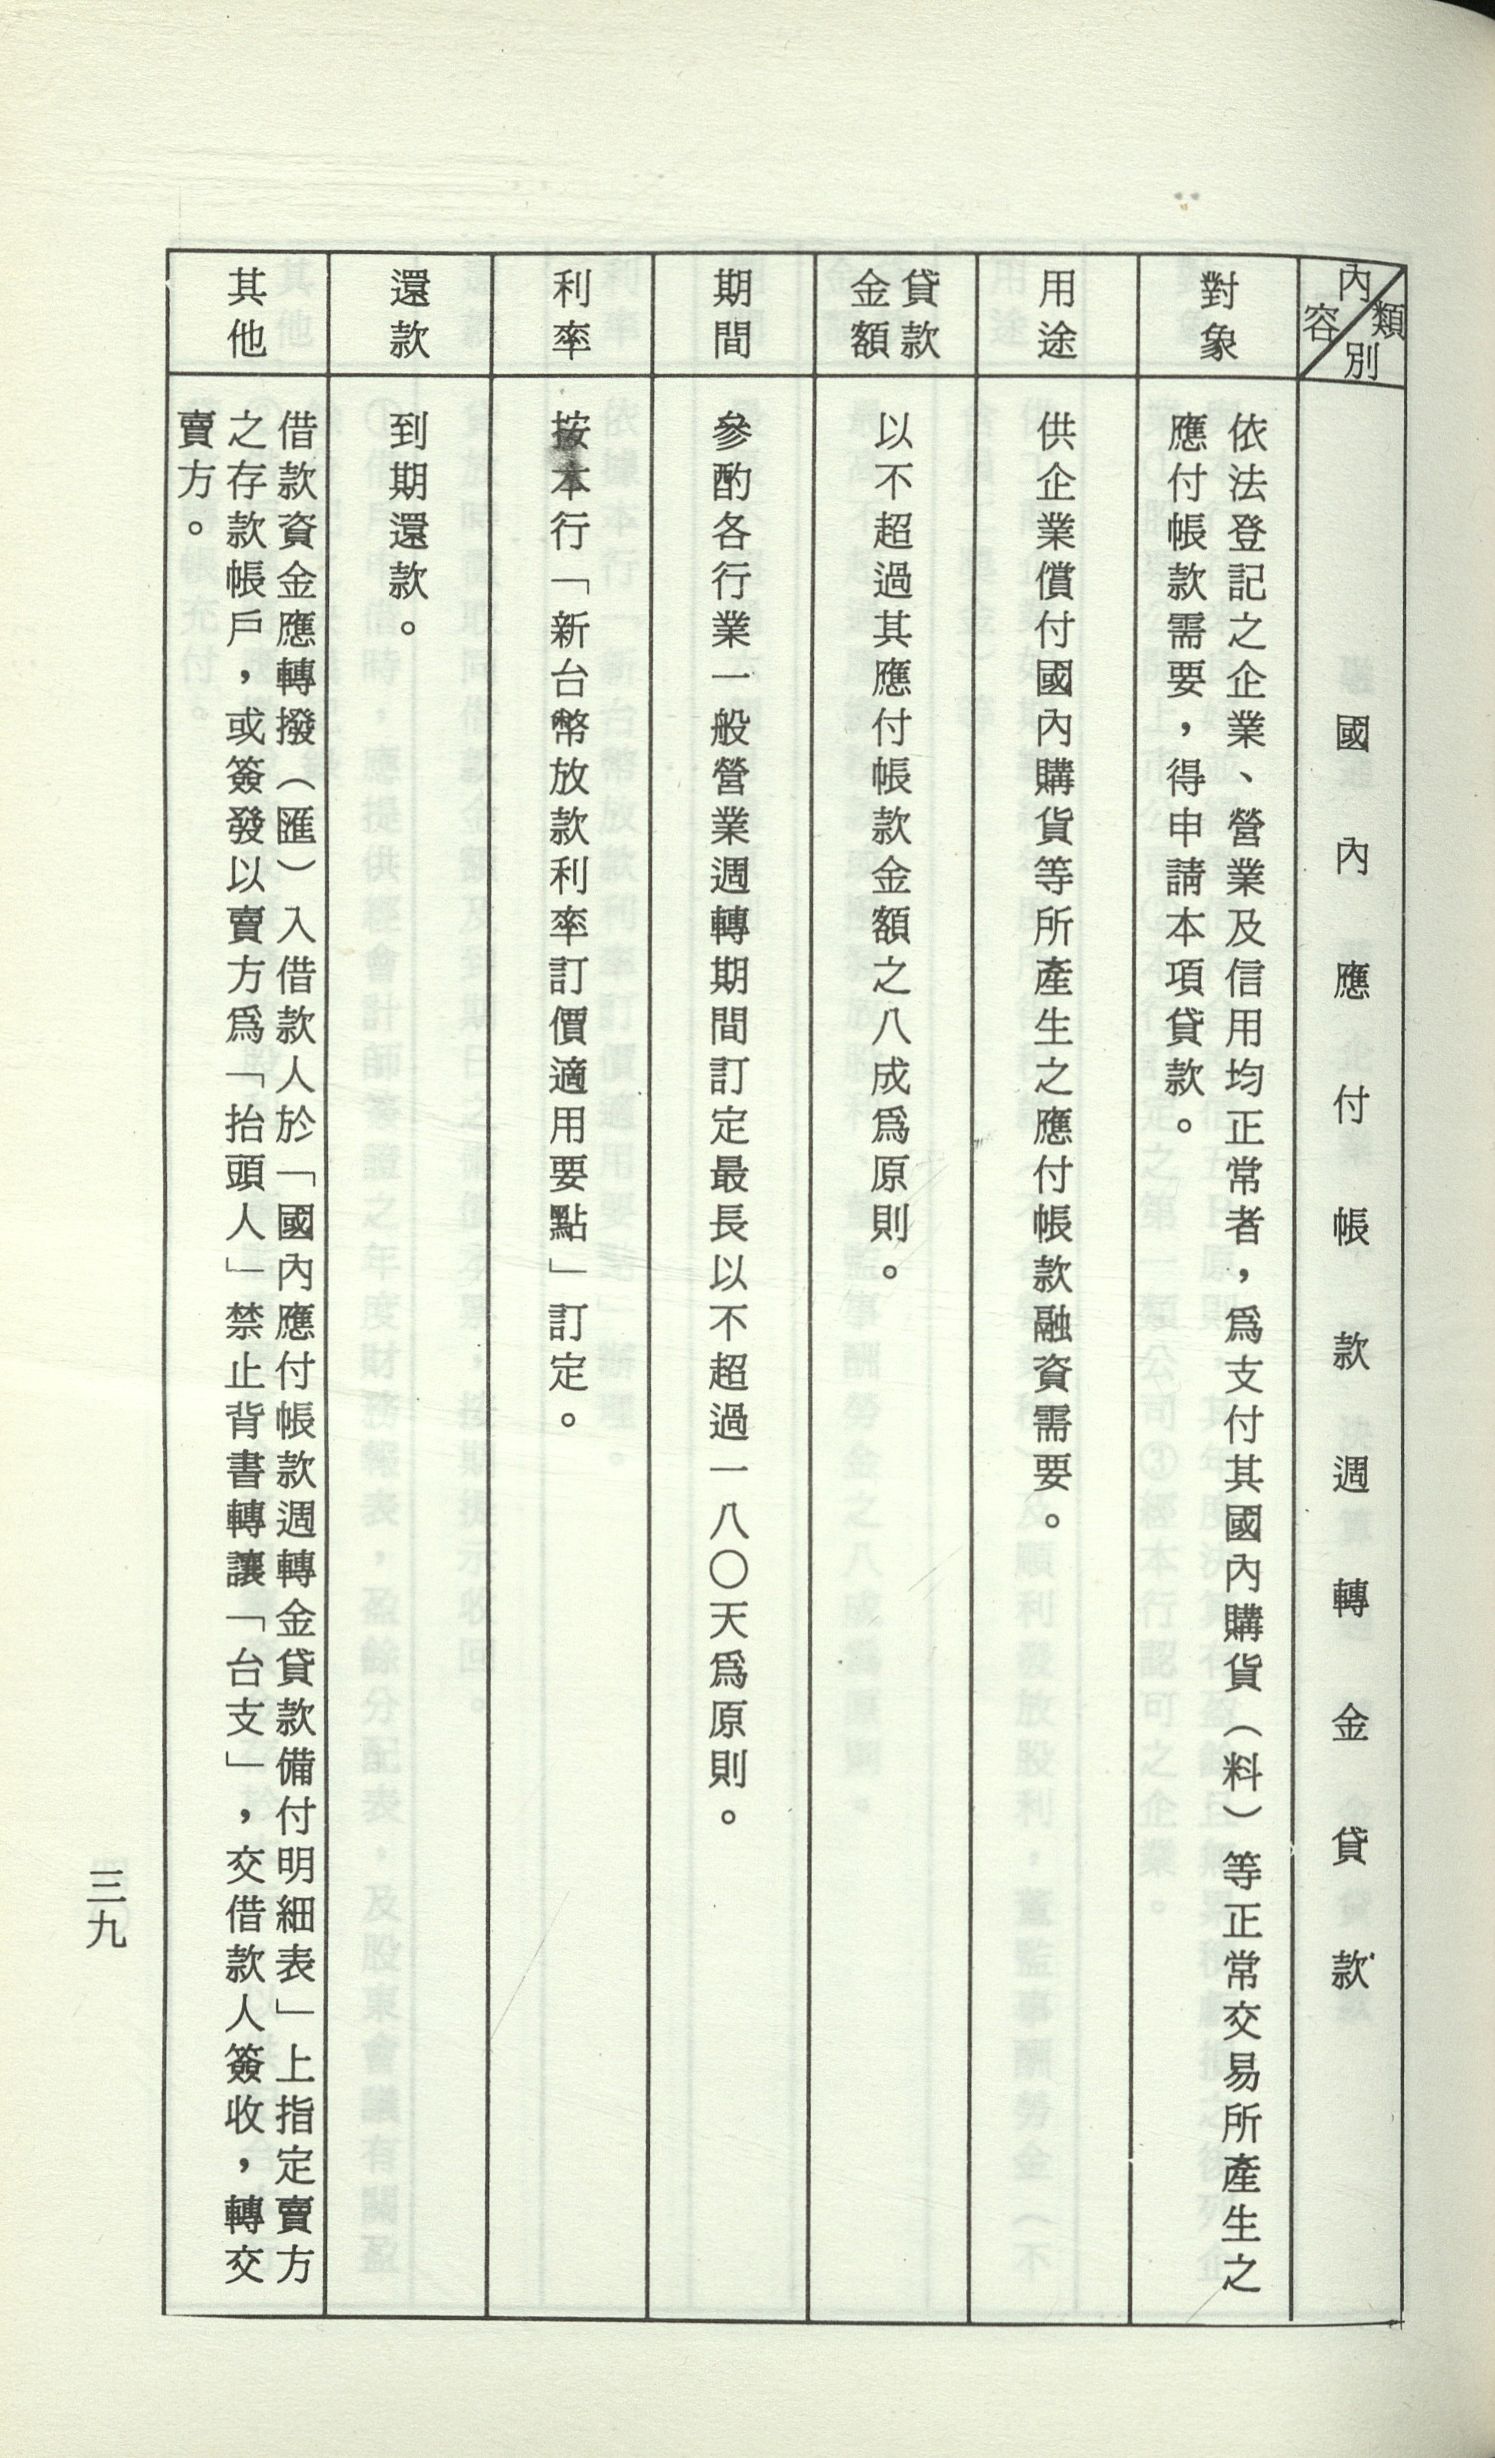 類別
內容
國內應付帳款週轉金貸款
對象
依法登記之企業、營業及信用均正常者，爲支付其國內購貨（料）等正常交易所產生之
應付帳款需要，得申請本項貸款。
用途
供企業償付國內購貨等所產生之應付帳款融資需要。
貸款
金額
以不超過其應付帳款金額之八成爲原則。
期間
參酌各行業一般營業週轉期間訂定最長以不超過一八〇天爲原則。
利率
按本行「新台幣放款利率訂價適用要點」訂定。
還款
到期還款。
其他
借款資金應轉撥（匯）入借款人於「國內應付帳款週轉金貸款備付明細表」上指定賣方
之存款帳戶，或簽發以賣方爲「抬頭人」禁止背書轉讓「台支」，交借款人簽收，轉交
賣方。
三九